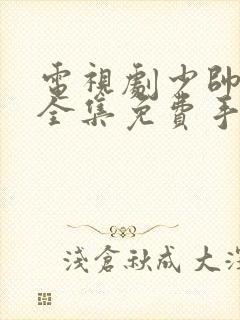 電視劇少帥
全集免費手
淺倉秋成 大